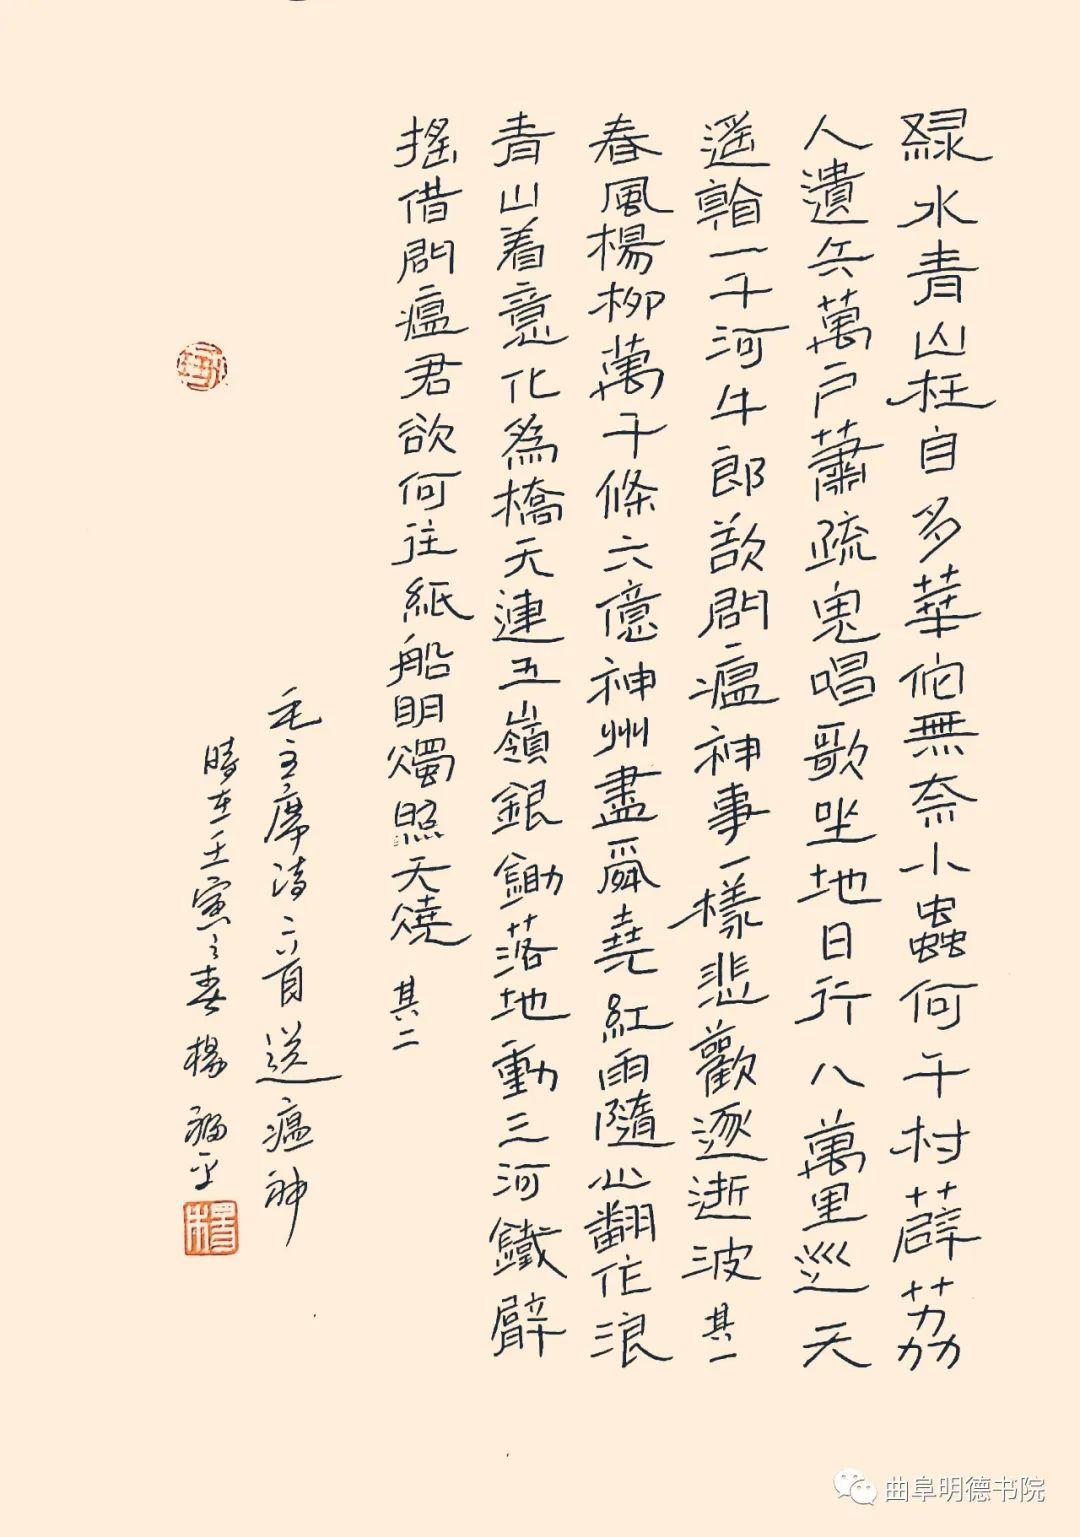 綠水青山枉自多華佗無奈小蟲何千村薜荔
人遺兵萬戶蕭疏鬼唱歌坐地日行八萬里巡天
遙看一千河牛郎欲問瘟神事一樣悲歡逐逝波其一
春風楊柳萬千條六億神州盡舜堯紅雨隨心翻作浪
青山着意化為橋天連五嶺銀鋤落地動三河鐵臂
搖借問瘟君欲何往紙船明燭照天燒其二
毛主席詩二首送瘟神
時在壬寅之春楊福平
曲阜明德书院